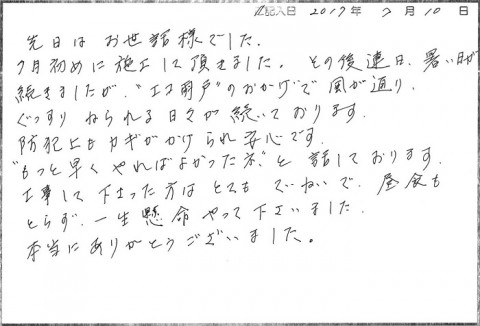 記入日 2017年 7月 10日
先日は お世話様でした。
7月初めに施工して頂きました。その後連日、暑い日が
続きましたが、"エコ雨戸"のおかげで 風が通り、
ぐっすり ねられる 日々が 続いて おります。
防犯上も カギが かけられ 安心です。
"もっと早く やれば よかったネ"と 話しております。
工事して 下さった方は とても ていねいで、昼食も
とらず、一生懸命 やって 下さいました。
本当に ありがとうございました。